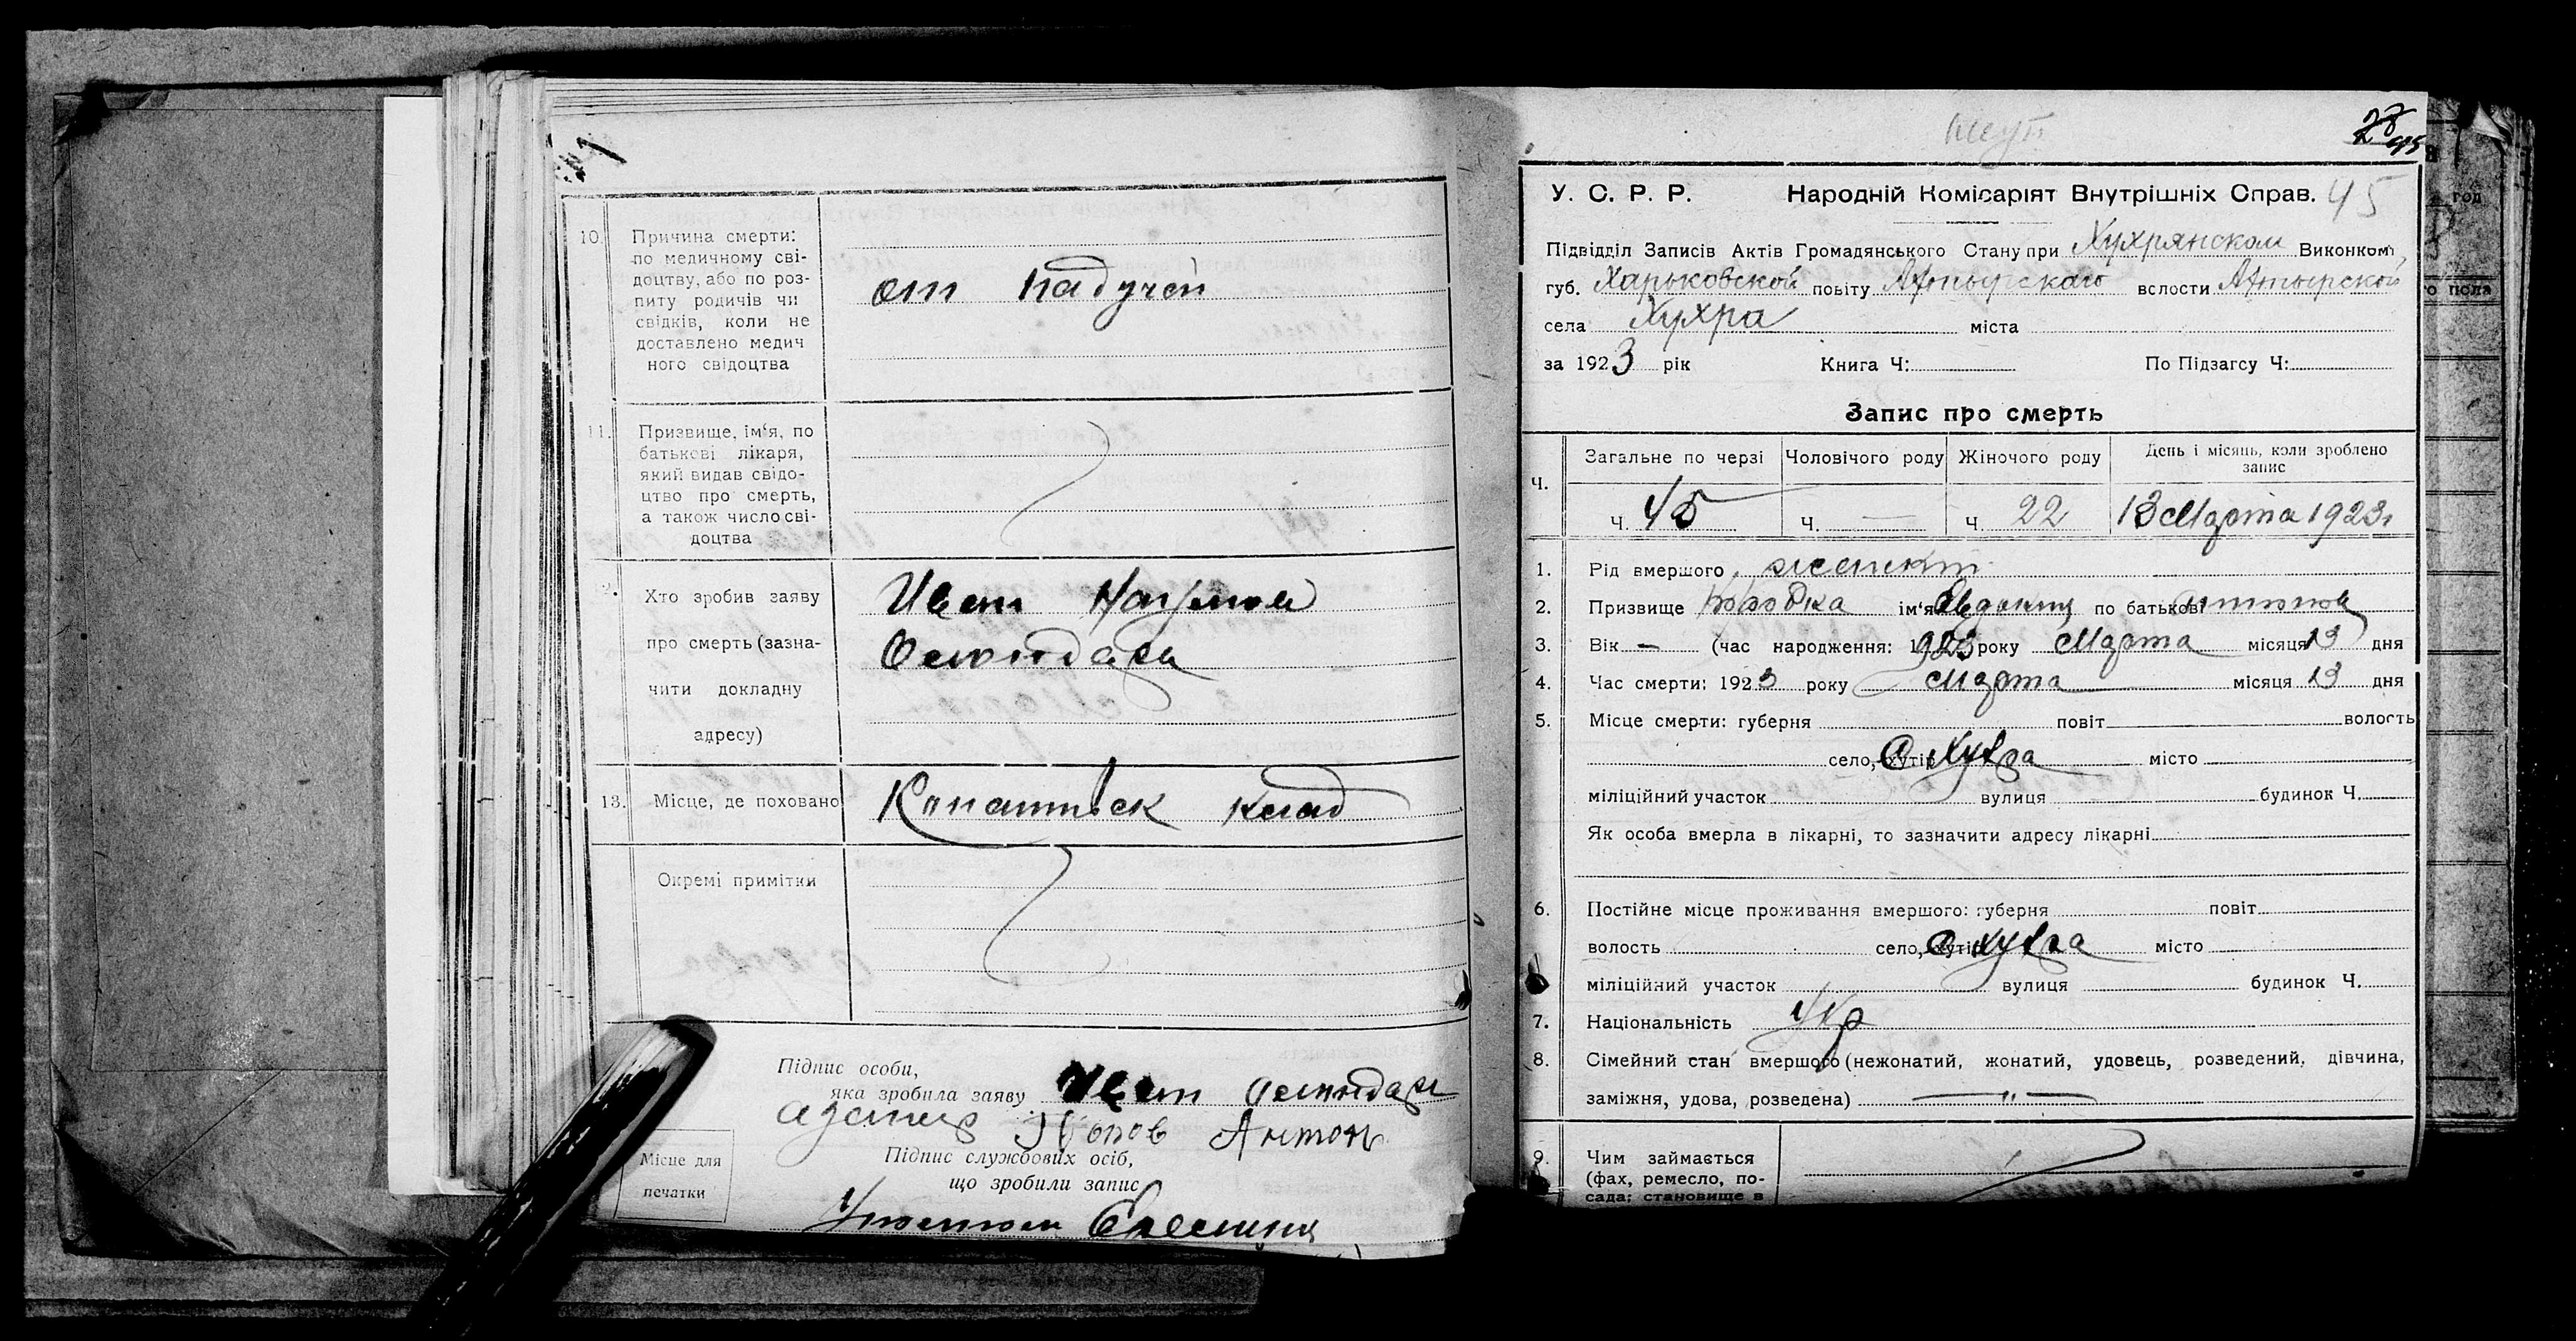 10. Причина смерти:
по медичному сві-
доцтву, або по роз-
питу родичів чи
свідків, коли не
доставлено медич
ного свідоцтва
от падучей
11. Призвище, ім'я, по
батькові лікаря,
який видав свідо-
цтво про смерть,
а також число сві-
доцтва
2. Хто зробив заяву
про смерть (зазна-
чити докладну
адресу)
13. Місце, де поховано
клад
Окремі примітки
Підпис особи,
яка зробила заяву
Попов Антон
Підпис службових осіб,
що зробили запис
Місце для
печатки
28
45
У. С. Р. Р. Народній Комісаріят Внутрішніх Справ. 45
Підвідділ Записів Актів Громадянського Стану при Хухрянском Виконком,
губ. Харьковской повіту Ахтырскаго вслости Ахтырской
села Хухра міста
за 1923 рік Книга Ч: По Підзагсу Ч:
Запис про смерть
Ч. Загальне по черзі Чоловічого роду Жіночого роду День і місяць, коли зроблено
запис
Ч. 45 Ч. — Ч. 22 13 Марта 1923г
1. Рід вмершого женский
2. Призвище ім'я Евдокия по батькові
3. Вік — (час народження: 1923 року Марта місяця 13 дня
4. Час смерти: 1923 року Марта місяця 13 дня
5. Місце смерти: губерня повіт волость
село, хутір Хухра місто
міліційний участок вулиця будинок Ч.
Як особа вмерла в лікарні, то зазначити адресу лікарні
6. Постійне місце проживання вмершого: губерня повіт
волость село, хутір Хухра місто
міліційний участок вулиця будинок Ч.
7. Національність Укр
8. Сімейний стан вмершого (нежонатий, жонатий, удовець, розведений, дівчина,
заміжня, удова, розведена) — " —
9. Чим займається
(фах, ремесло, по-
сада; становище в